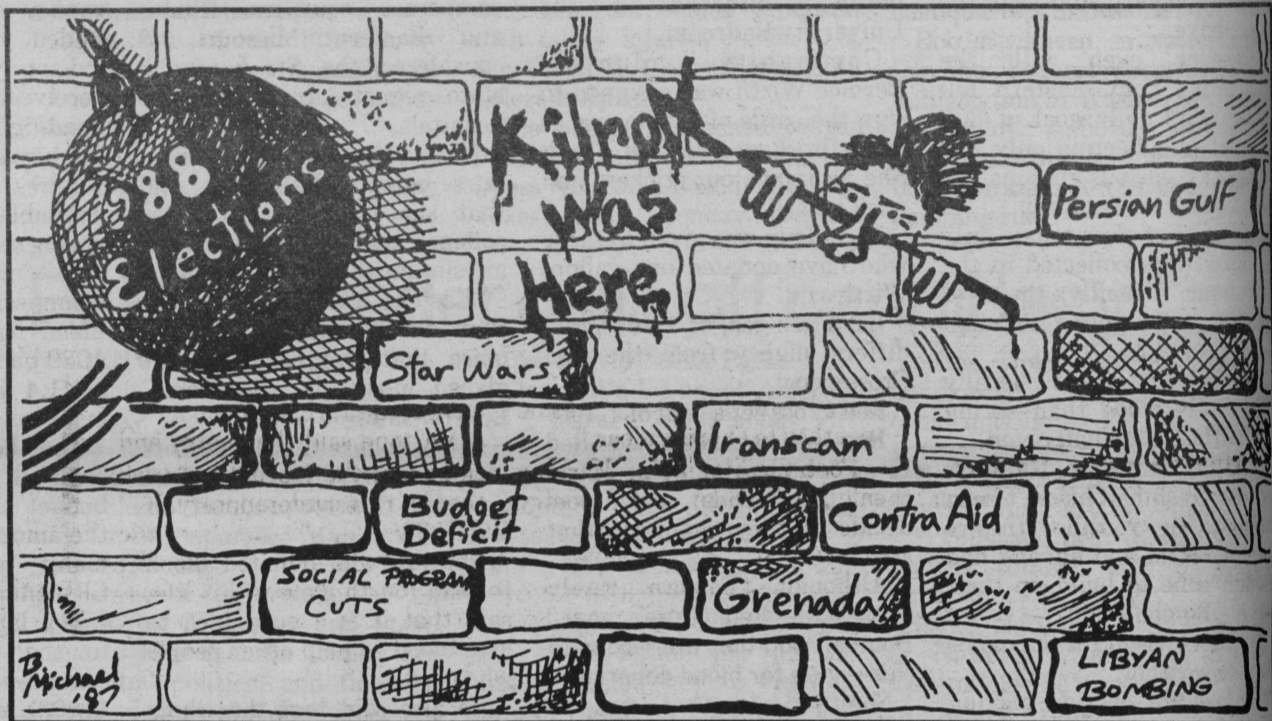 '88
Elections
Kilroy
Was
Here
Persian Gulf
Star Wars
Iranscam
Budget
Deficit
Contra Aid
SOCIAL PROGRAM
CUTS
Grenada
B.
Michael
'87
LIBYAN
BOMBING